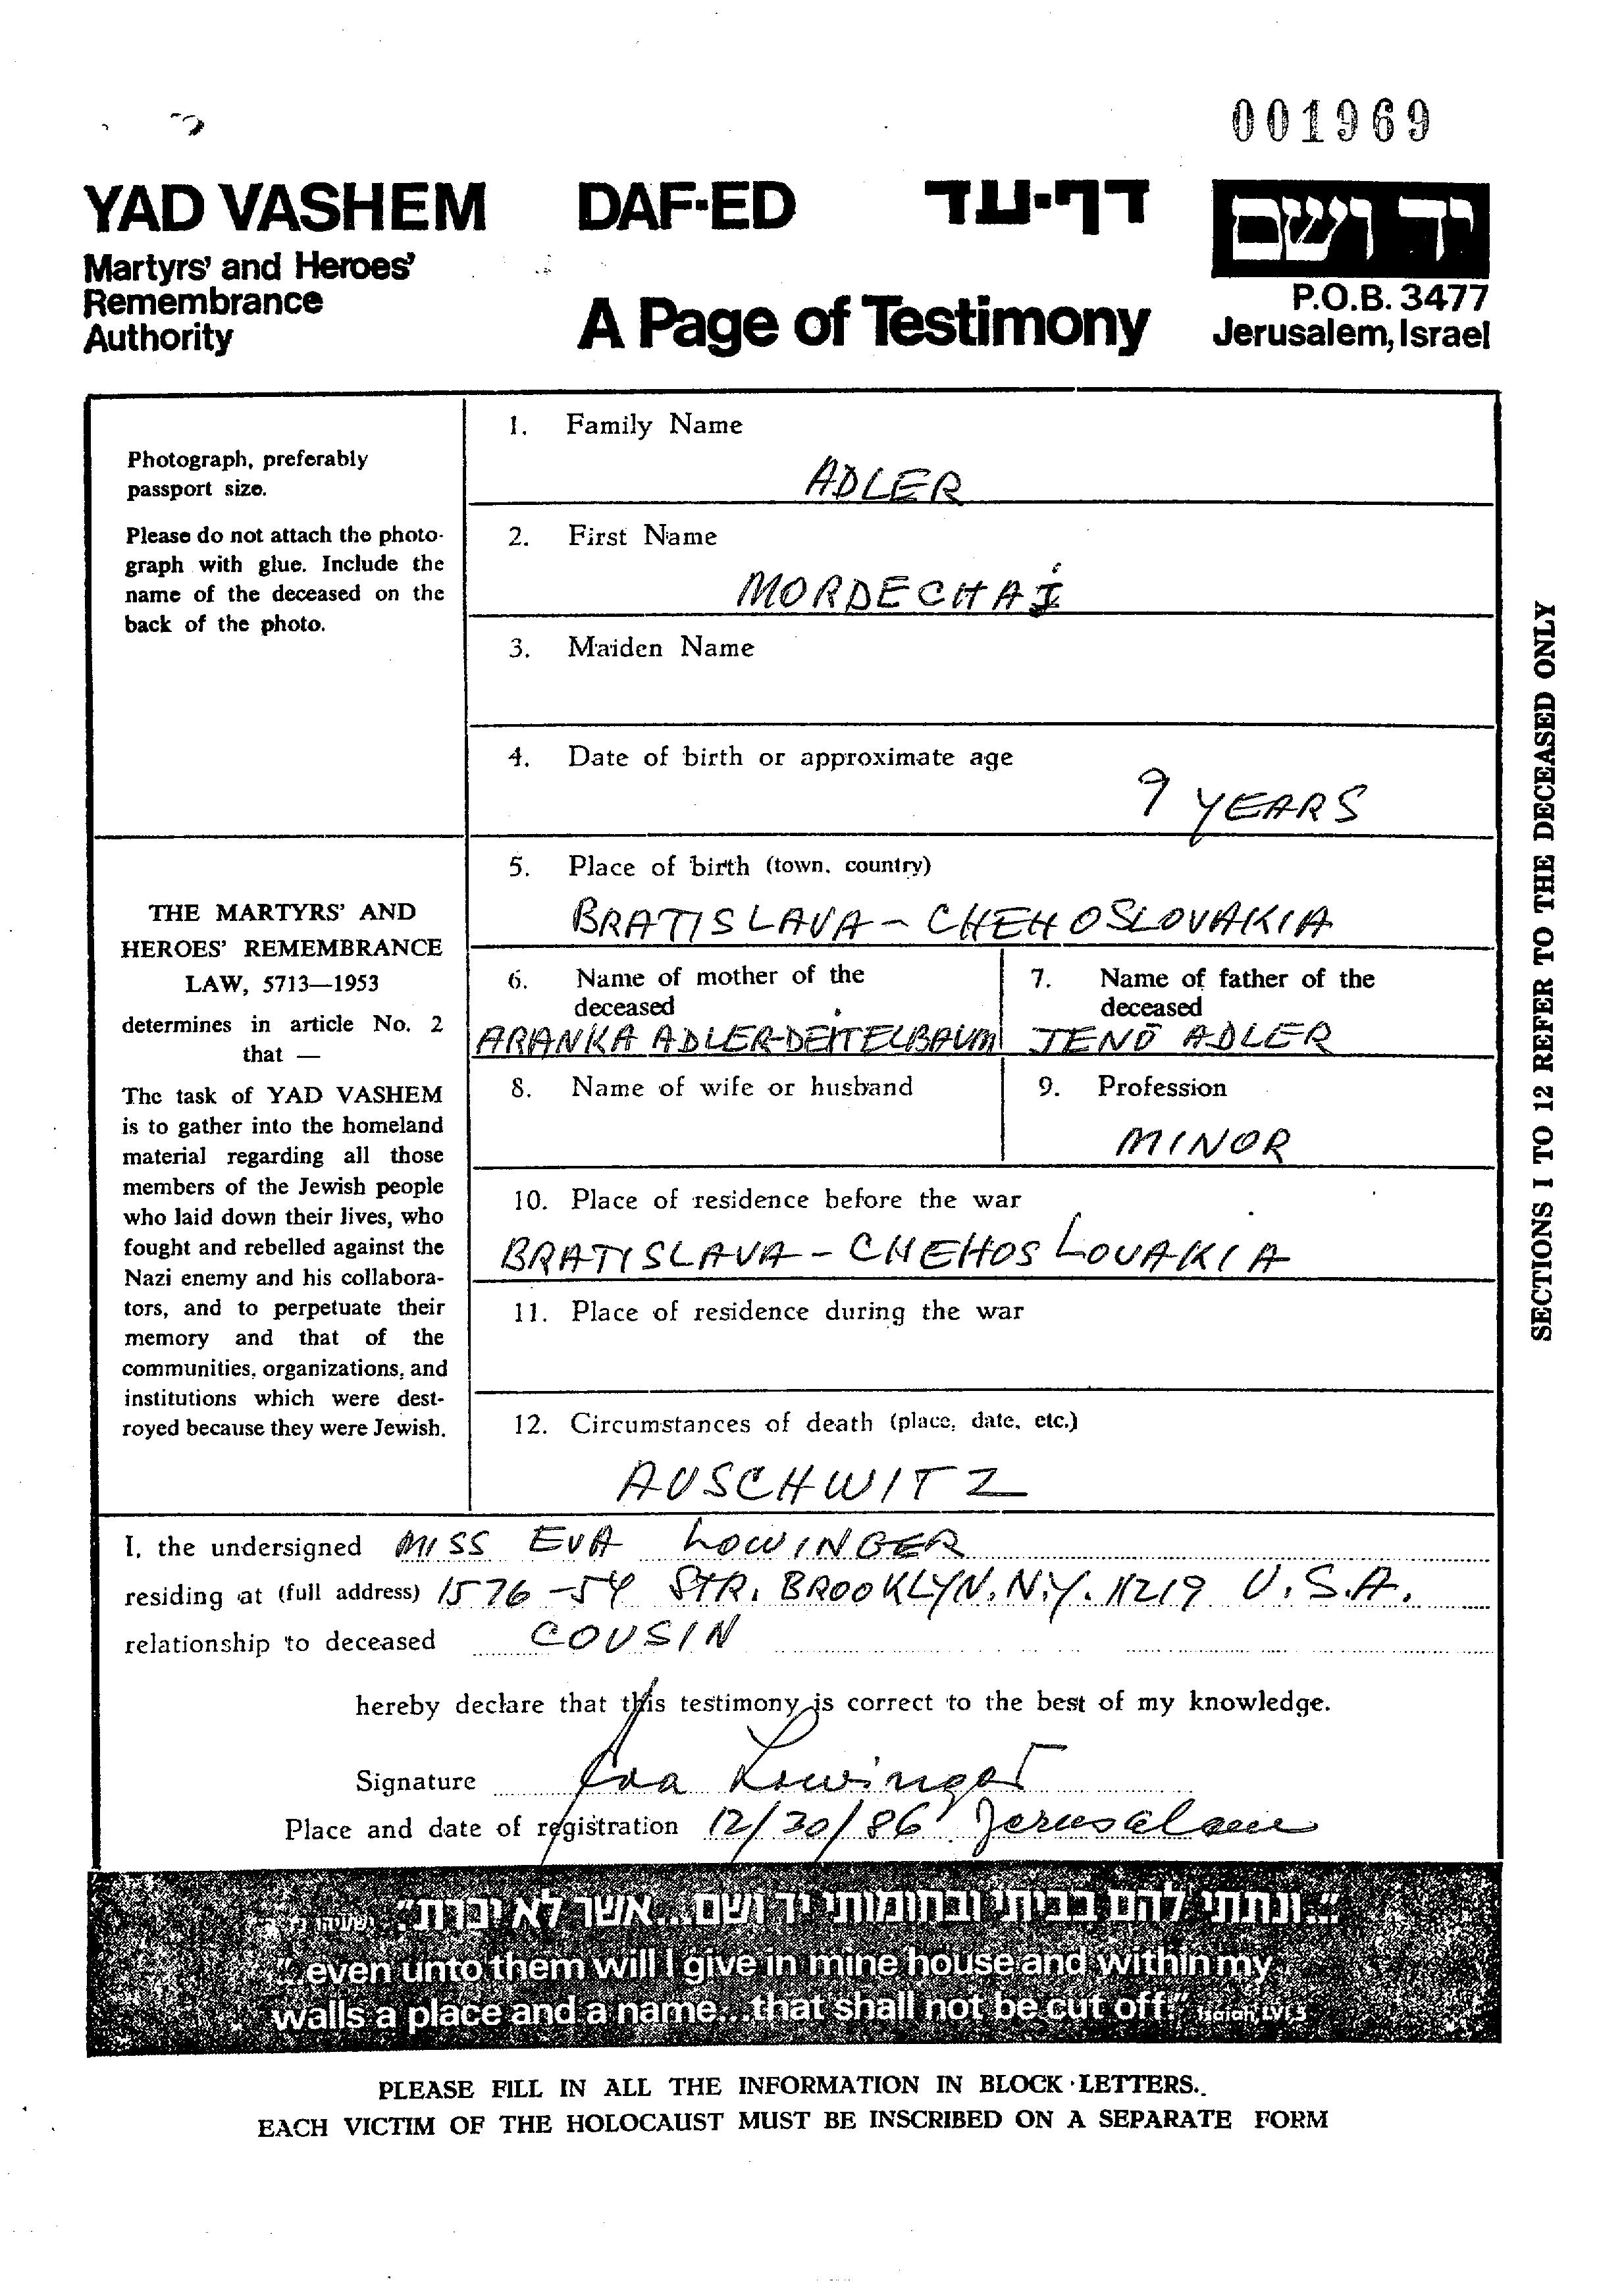 001969
YAD VASHEM DAF-ED דף-עד יד ושם
Martyrs' and Heroes'
Remembrance
Authority
A Page of Testimony
P.O.B. 3477
Jerusalem, Israel
Photograph, preferably
passport size.
Please do not attach the photo-
graph with glue. Include the
name of the deceased on the
back of the photo.
THE MARTYRS' AND
HEROES' REMEMBRANCE
LAW, 5713—1953
determines in article No. 2
that —
The task of YAD VASHEM
is to gather into the homeland
material regarding all those
members of the Jewish people
who laid down their lives, who
fought and rebelled against the
Nazi enemy and his collabora-
tors, and to perpetuate their
memory and that of the
communities, organizations, and
institutions which were dest-
royed because they were Jewish.
1. Family Name
ADLER
2. First Name
MORDECHAI
3. Maiden Name
4. Date of birth or approximate age
9 YEARS
5. Place of birth (town, country)
BRATISLAVA - CHEHOSLOVAKIA
6. Name of mother of the
deceased
ARANKA ADLER-DEITELBAUM
7. Name of father of the
deceased
JENŐ ADLER
8. Name of wife or husband
9. Profession
MINOR
10. Place of residence before the war
BRATISLAVA - CHEHOSLOVAKIA
11. Place of residence during the war
12. Circumstances of death (place, date, etc.)
AUSCHWITZ
SECTIONS 1 TO 12 REFER TO THE DECEASED ONLY
I, the undersigned MISS EVA LOWINGER
residing at (full address) 1576-54 STR. BROOKLYN. N.Y. 11219 U.S.A.
relationship to deceased COUSIN
hereby declare that this testimony is correct to the best of my knowledge.
Signature Eva Lowinger
Place and date of registration 12/30/86 Jerusalem
"...ונתתי להם בביתי ובחומותי יד ושם...אשר לא יכרת" ישעיהו
"..even unto them will I give in mine house and within my
walls a place and a name...that shall not be cut off." Isaiah, LVI, 5
PLEASE FILL IN ALL THE INFORMATION IN BLOCK LETTERS.
EACH VICTIM OF THE HOLOCAUST MUST BE INSCRIBED ON A SEPARATE FORM